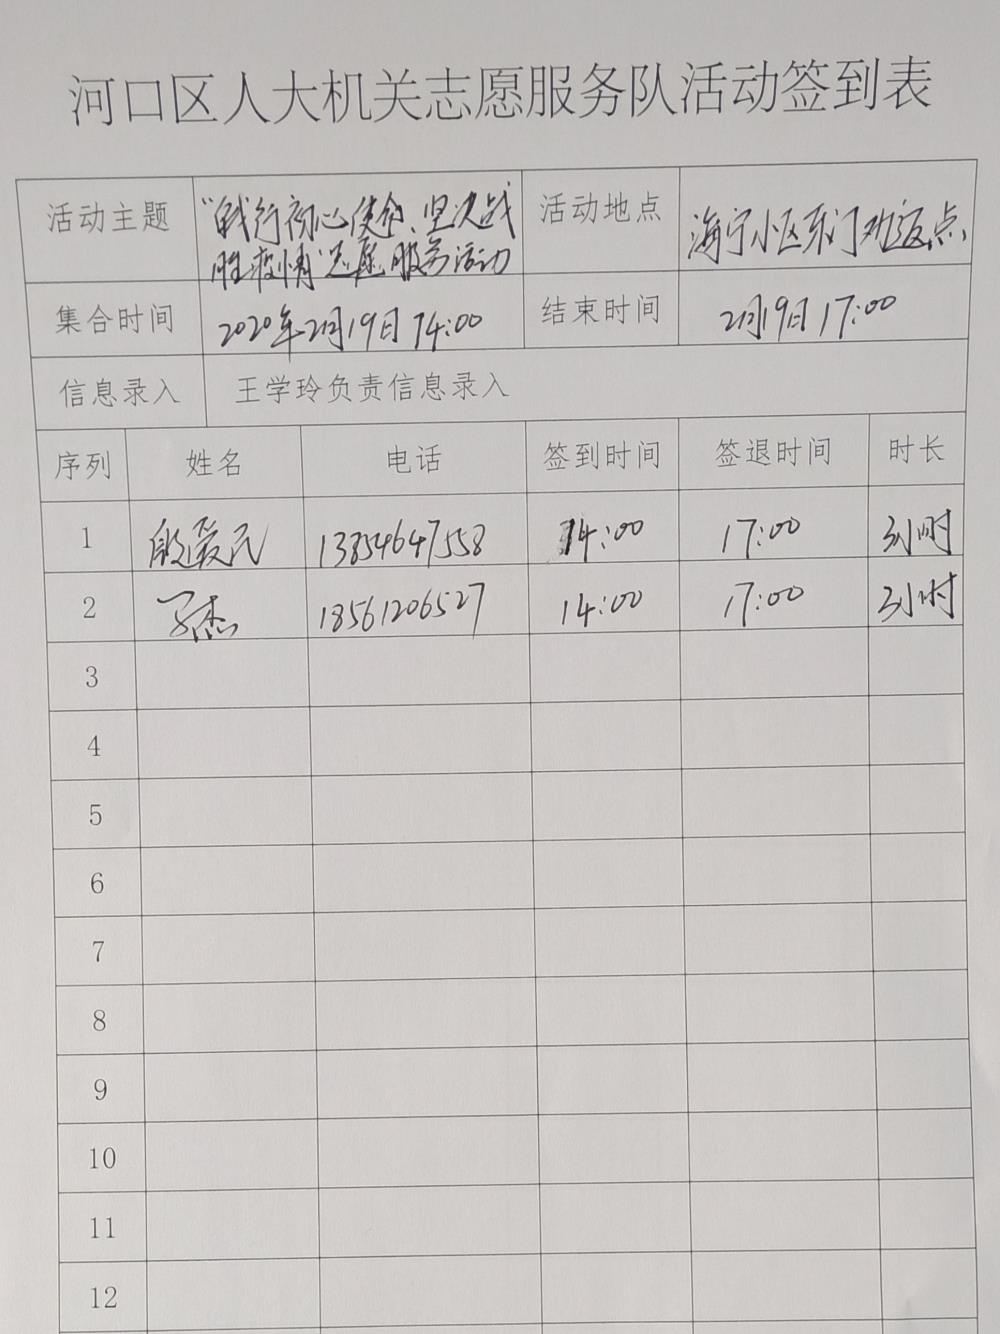 河口区人大机关志愿服务队活动签到表
活动主题 “践行初心使命、坚决战 活动地点 海宁小区东门劝返点
胜疫情”志愿服务活动
集合时间 2020年2月19日 14:00 结束时间 2月19日 17:00
信息录入 王学玲负责信息录入
序列 姓名 电话 签到时间 签退时间 时长
1 殷爱民 13854647558 14:00 17:00 3小时
2 杰 18561206527 14:00 17:00 3小时
3
4
5
6
7
8
9
10
11
12